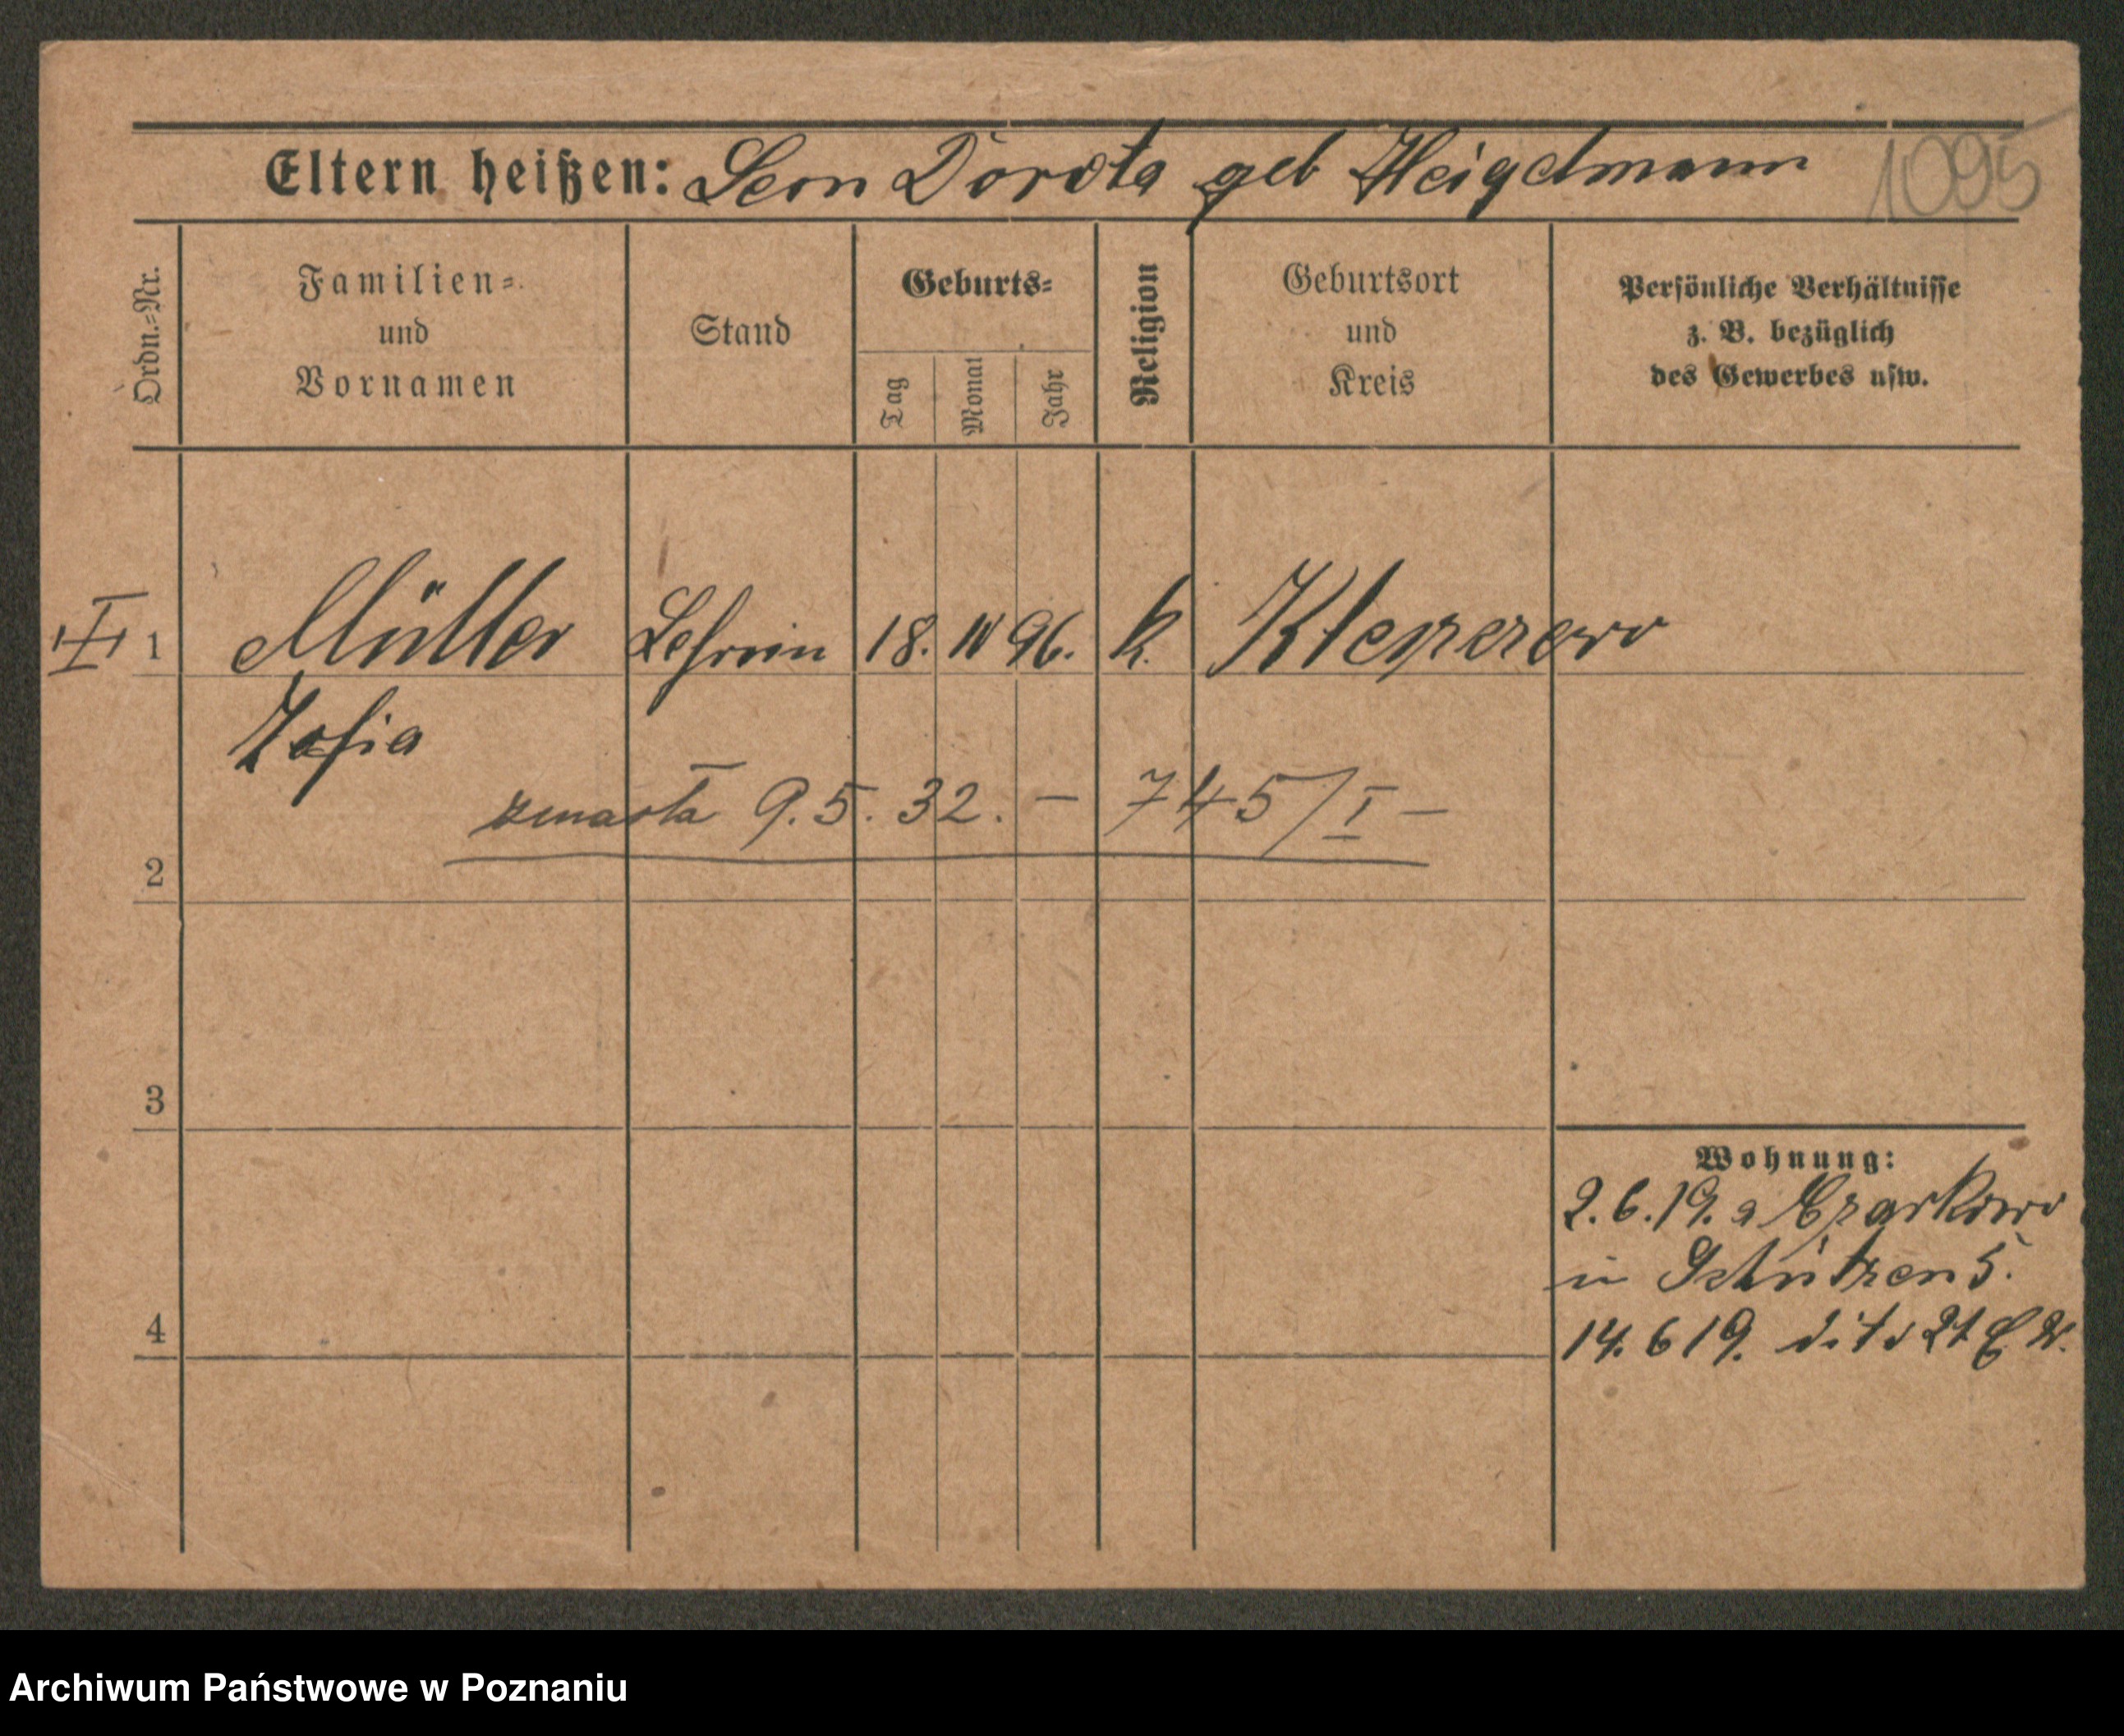 Eltern heißen: Leon Dorota geb Heigelmann 1095
Ordn.=Nr.
Familien=
und
Vornamen
Stand
Geburts=
Tag
Monat
Jahr
Religion
Geburtsort
und
Kreis
Persönliche Verhältnisse
z. B. bezüglich
des Gewerbes usw.
1 Müller Lehrerin 18. IV 96. k.
Zofia
zmarła 9.5.32. – 745/I –
2
3
4
Wohnung:
2.6.19. a Czarkowo
in Schützen 5.
14.6 19. dito 21
Archiwum Państwowe w Poznaniu